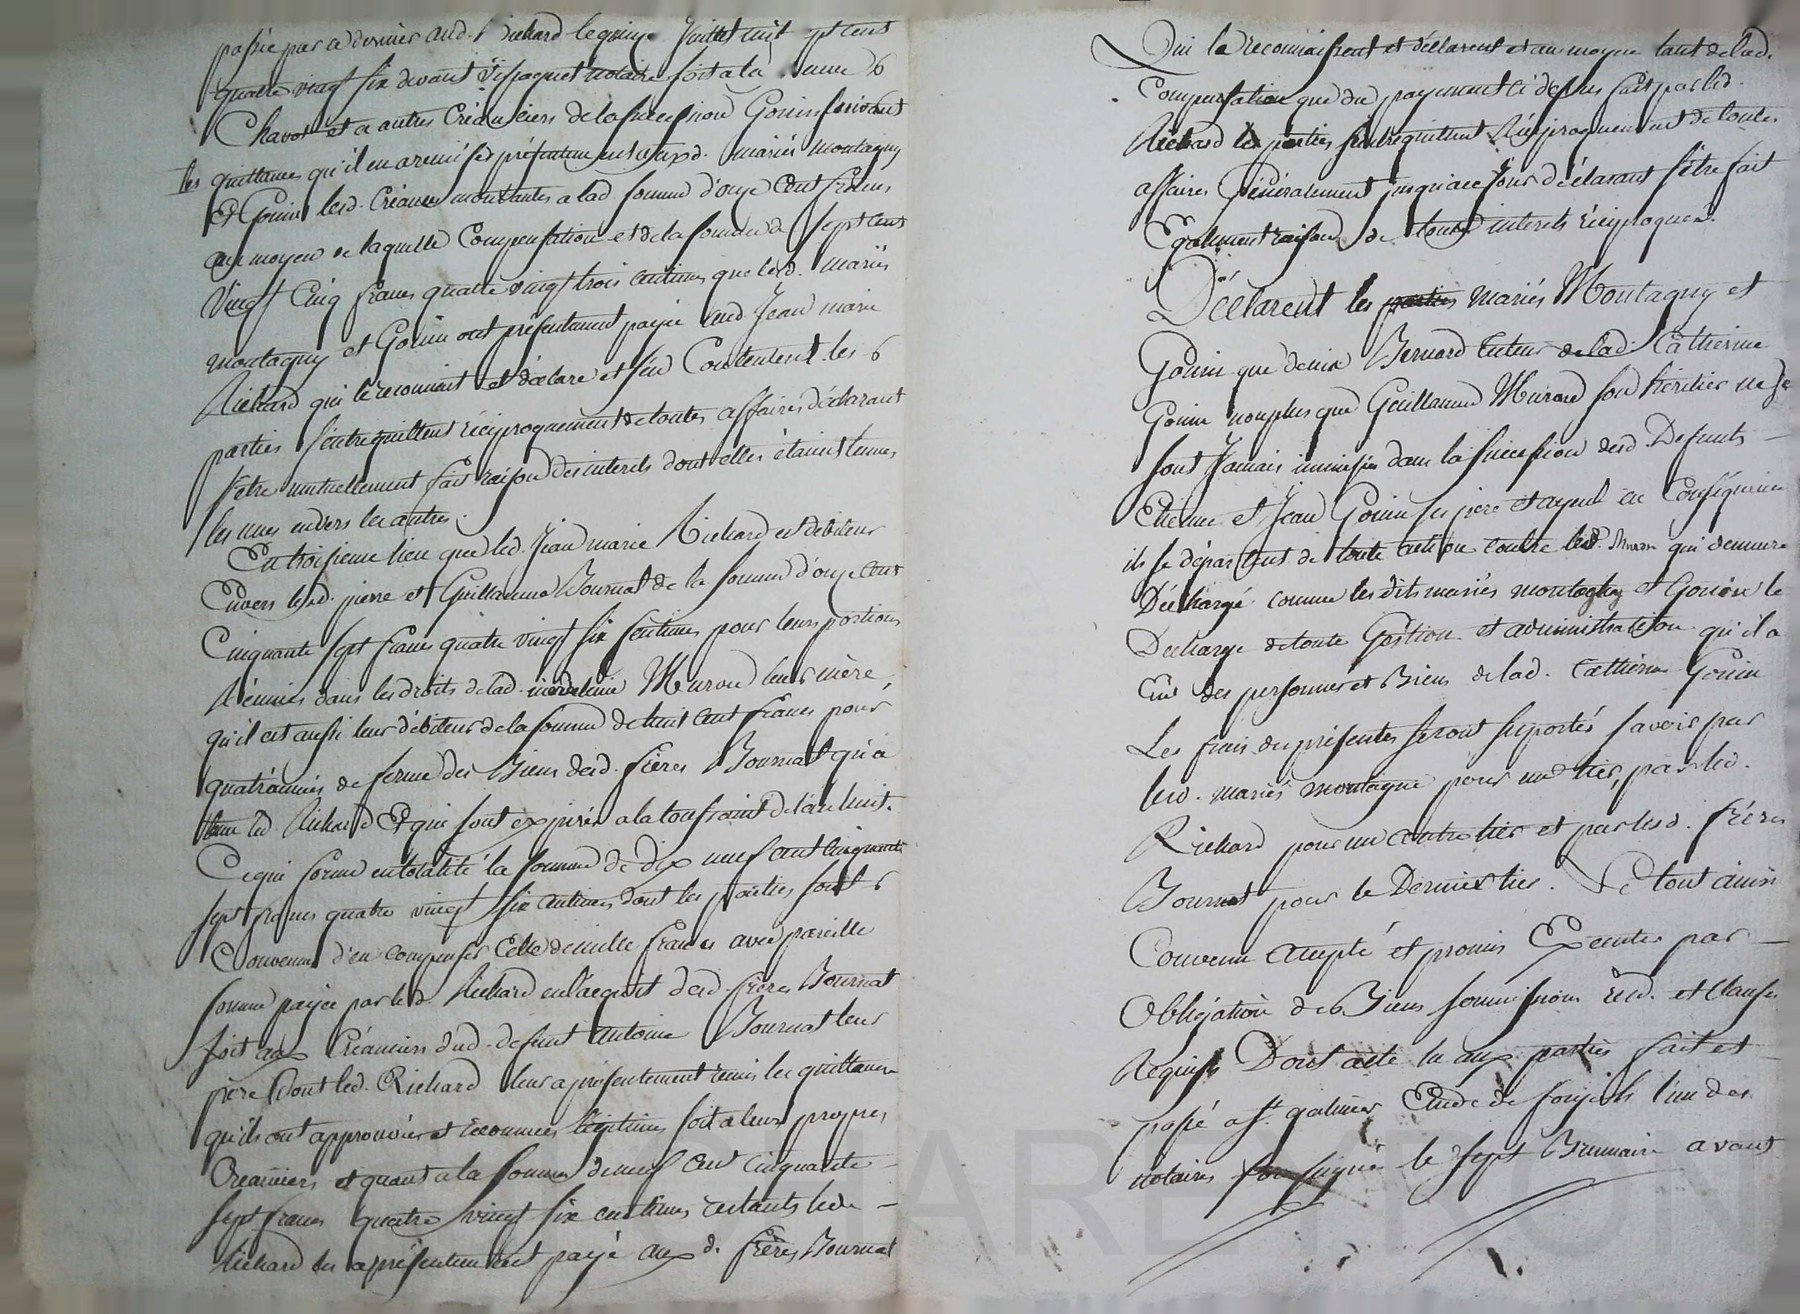 passée par ce dernier aud. Richard le quinze Juillet mil sept cent
quatre vingt six devant notaire soit a la
Chavot et a autres Créanciers de la succession Gonin suivant
les quittances qu'il en a remises présentement auxd. mariés montagny
Et Gonin lesd. Créances montantes a lad. somme d'onze Cent francs
au moyen de laquelle Compensation et de la somme de Sept Cent
Vingt Cinq francs quatre vingt trois centimes que lesd. mariés
montagny et Gonin ont présentement payée aud Jean marie
Richard qui le reconnait et déclare et s'en Contenter les
parties s'entrequittent réciproquement de toutes affaires déclarant
s'être mutuellement fait raison des interets dont elles étaient tenues
les unes envers les autres.
En troisieme lieu que led. Jean marie Richard est débiteur
Envers lesd. pierre et Guillaume Bournat de la somme d'onze Cent
Cinquante sept francs quatre vingt six centimes pour leurs portions
Réunies dans les droits de lad. Muron leur mère,
qu'il est aussi leur débiteur de la somme de huit Cent francs pour
quatre années de ferme des Biens desd. frères Bournat qu'a
tenu led Richard Et qui sont expirées a la toussaint de l'an huit.
Ce qui forme en totalité la somme de dix neuf cent cinquante
sept francs quatre vingt six centimes dont les parties sont
Convenues d'en compenser Celle de mille francs avec pareille
somme payée par led. Richard en l'acquit desd. frères Bournat
soit aux Créanciers dud. defunt antoine Bournat leur
père dont led. Richard leur a présentement remis les quittances
qu'ils ont approuvées et reconnues légitimes soit a leurs propres
Créanciers et quant a la somme de neuf cent cinquante
sept francs quatre vingt six centimes restants led.
Richard les a présentement payé aux d. frères Bournat
Qui le reconnaissent et déclarent et au moyen tant de lad.
Compensation que du payement ci dessus fait par led.
Richard les parties s'entrequittent Réciproquement de toutes
affaires Généralement jusqu'a ce Jour déclarant s'être fait
Egalement raison de tous interets réciproques.
Déclarent les parties mariés Montagny et
Gonin que Bernard tuteur de lad. Catherine
Gonin non plus que Guillaume Murond son héritier ne se
sont Jamais immiscés dans la succession desd. Defunts
Etienne et Jean Gonin ses père et ayeul en Conséquence
ils se départent de toute action contre led. Muron qui demeure
Déchargé comme les dits mariés montagny et Gonin le
Décharge de toute Gestion et administration qu'il a
Eüe des personnes et Biens de lad. Catherine Gonin
Les frais des présentes seront suportés savoir par
lesd. mariés montagne pour un tier, par led.
Richard pour un autre tier et par lesd. frères
Bournat pour le Dernier tier. Le tout ainsi
Convenu accepté et promis Executer par
Obligation de Biens soumissions Rend. et Clauses
Requises Dont acte lu aux parties fait et
passé a St. galmier Etude de l'un des
notaires soussigné le sept Brumaire avant
CHAREYRON